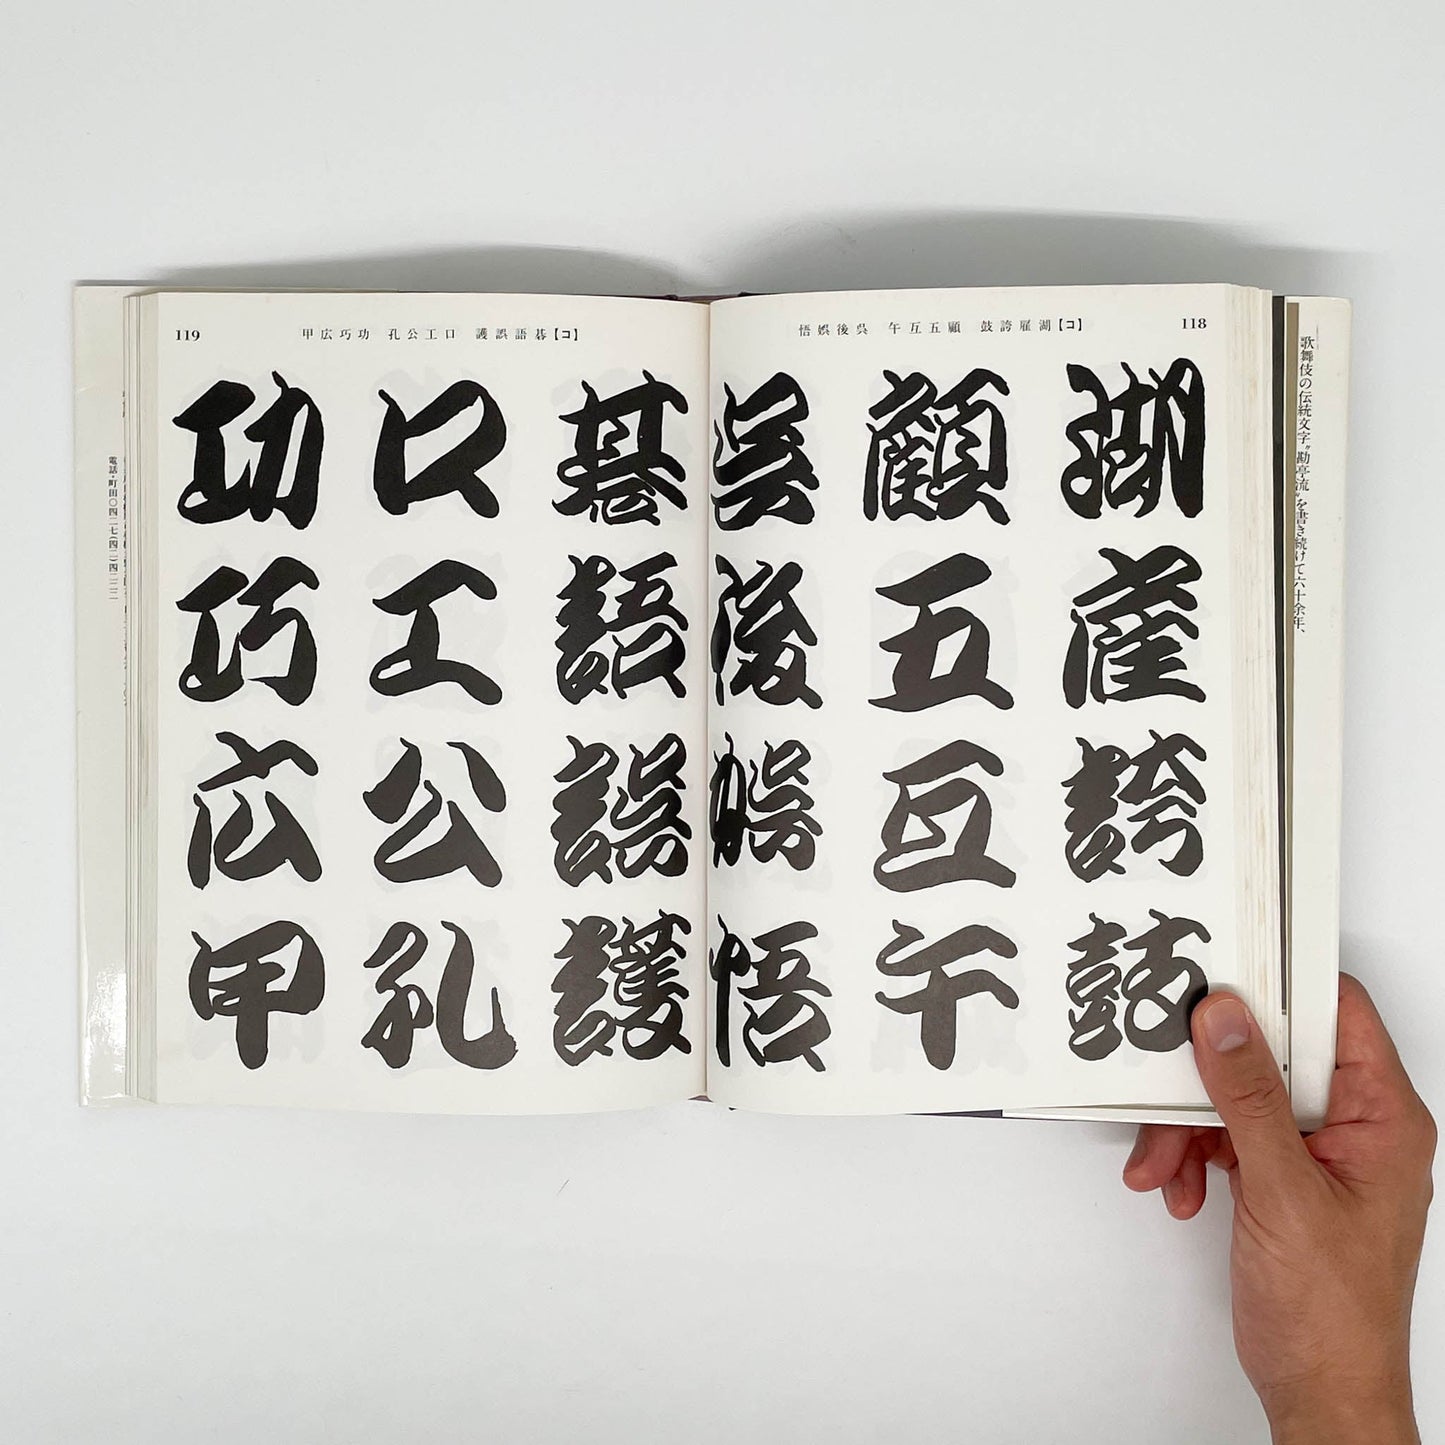 歌舞伎の伝統文字“勘亭流”を書き続けて六十余年、
118
【コ】湖雇誇鼓 顧五互午 呉後娯悟
湖雇誇鼓
顧五互午
呉後娯悟
【コ】碁語誤護 口工公孔 功巧広甲
119
碁語誤護
口工公孔
功巧広甲
電話・町田〇四二七(四二)四二二二